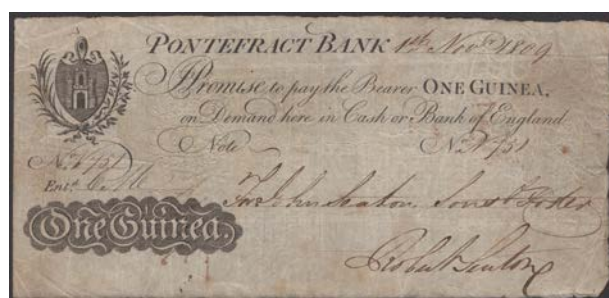 PONTEFRACT BANK 1st Novr 1809
I Promise to pay the Bearer ONE GUINEA,
on Demand here in Cash or Bank of England
Note No
No
Entd
For John Seaton, Sons & Foster
One Guinea.
Robert Seaton